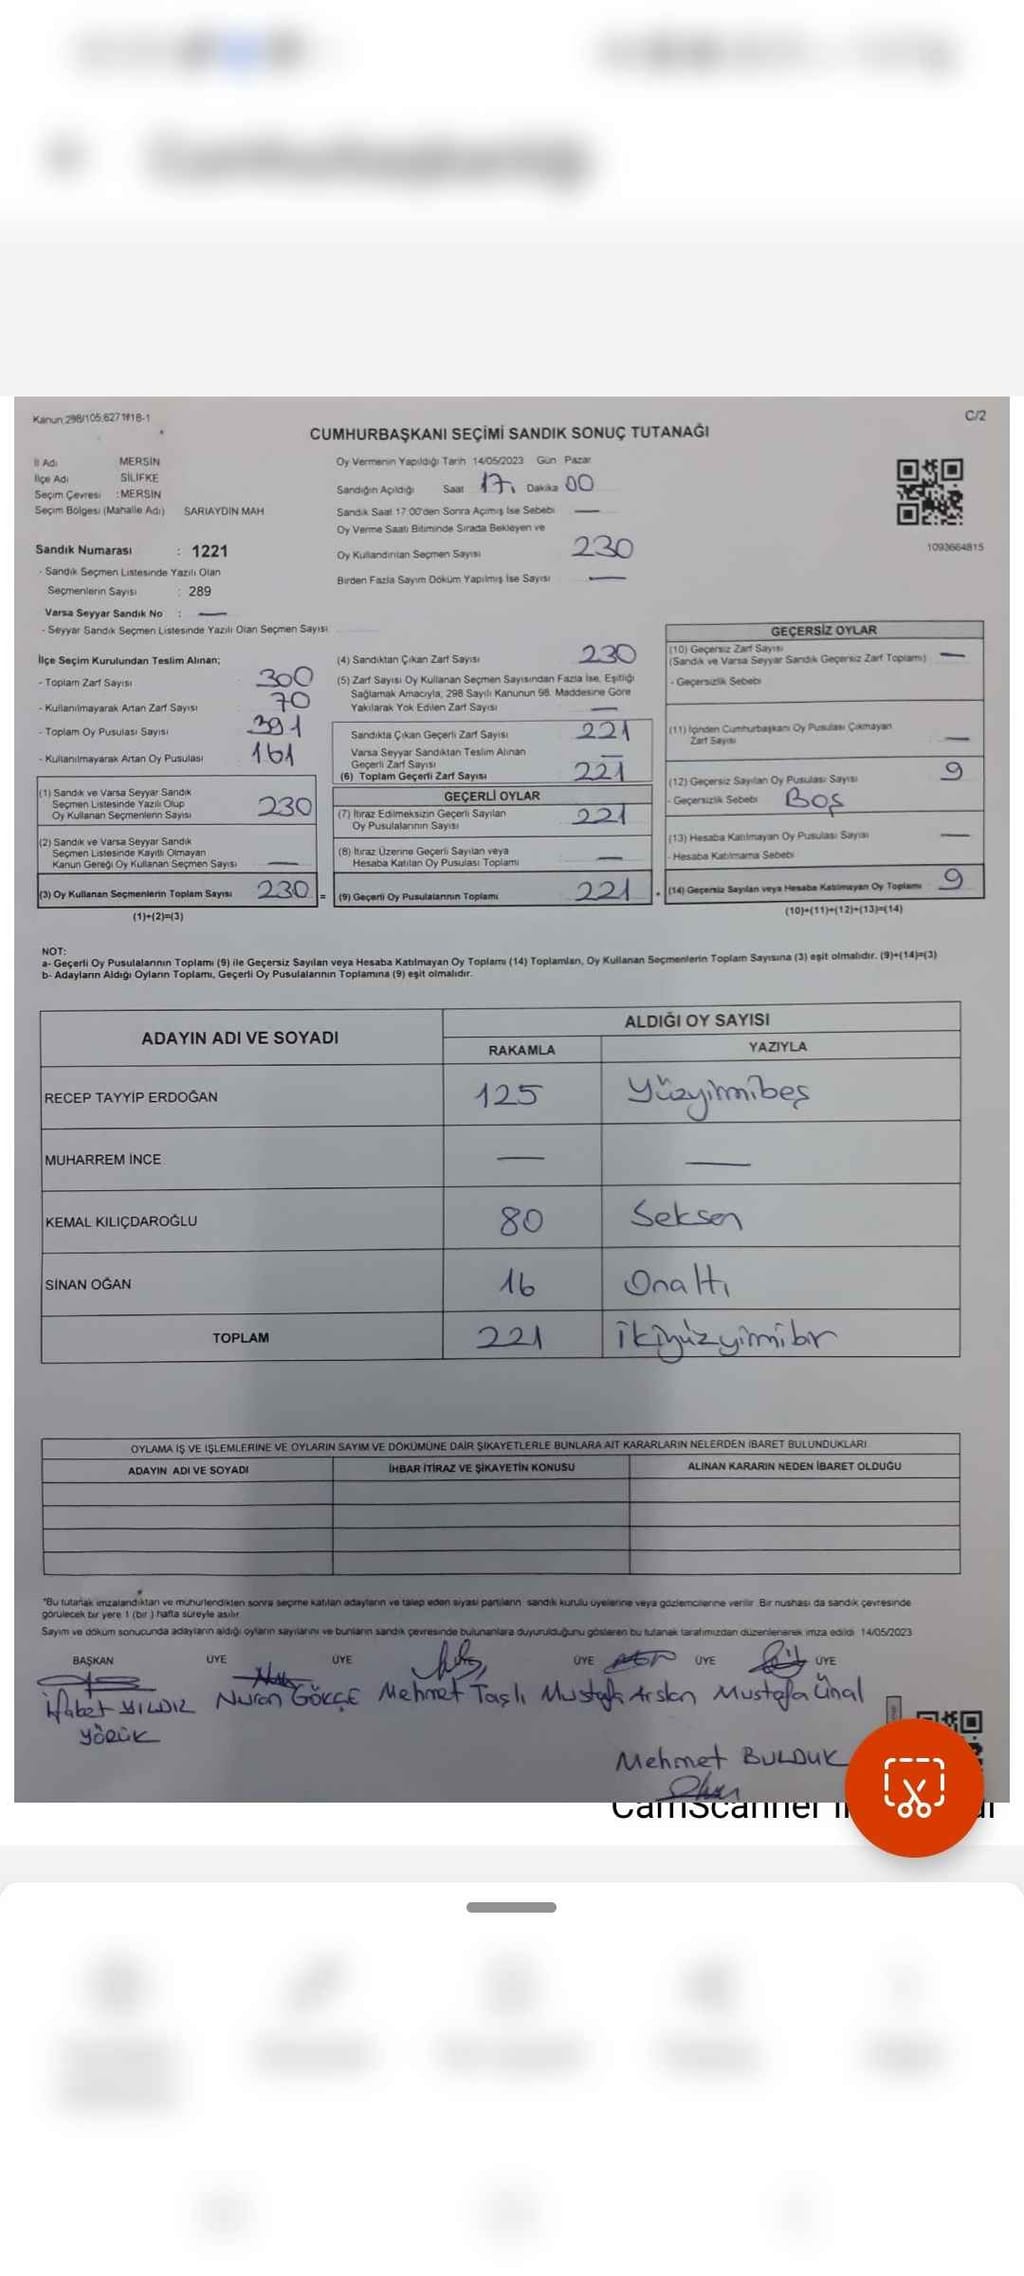 Kanun:298/105;6271/18-1
C/2
CUMHURBAŞKANI SEÇİMİ SANDIK SONUÇ TUTANAĞI
İl Adı MERSİN
İlçe Adı SİLİFKE
Seçim Çevresi :MERSİN
Seçim Bölgesi (Mahalle Adı) SARIAYDIN MAH
Oy Vermenin Yapıldığı Tarih 14/05/2023 Gün Pazar
Sandığın Açıldığı Saat 17, Dakika 00
Sandık Saat 17:00'den Sonra Açımış İse Sebebi —
Oy Verme Saati Bitiminde Sırada Bekleyen ve
Oy Kullandırılan Seçmen Sayısı 230
Birden Fazla Sayım Döküm Yapılmış İse Sayısı —
1093664815
Sandık Numarası : 1221
- Sandık Seçmen Listesinde Yazılı Olan
Seçmenlerin Sayısı : 289
Varsa Seyyar Sandık No : —
- Seyyar Sandık Seçmen Listesinde Yazılı Olan Seçmen Sayısı
İlçe Seçim Kurulundan Teslim Alınan;
- Toplam Zarf Sayısı 300
- Kullanılmayarak Artan Zarf Sayısı 70
- Toplam Oy Pusulası Sayısı 391
- Kullanılmayarak Artan Oy Pusulası 161
(1) Sandık ve Varsa Seyyar Sandık
Seçmen Listesinde Yazılı Olup
Oy Kullanan Seçmenlerin Sayısı 230
(2) Sandık ve Varsa Seyyar Sandık
Seçmen Listesinde Kayıtlı Olmayan
Kanun Gereği Oy Kullanan Seçmen Sayısı —
(3) Oy Kullanan Seçmenlerin Toplam Sayısı 230 =
(1)+(2)=(3)
(4) Sandıktan Çıkan Zarf Sayısı 230
(5) Zarf Sayısı Oy Kullanan Seçmen Sayısından Fazla İse, Eşitliği
Sağlamak Amacıyla, 298 Sayılı Kanunun 98. Maddesine Göre
Yakılarak Yok Edilen Zarf Sayısı —
Sandıkta Çıkan Geçerli Zarf Sayısı 221
Varsa Seyyar Sandıktan Teslim Alınan
Geçerli Zarf Sayısı —
(6) Toplam Geçerli Zarf Sayısı 221
GEÇERLİ OYLAR
(7) İtiraz Edilmeksizin Geçerli Sayılan
Oy Pusulalarının Sayısı 221
(8) İtiraz Üzerine Geçerli Sayılan veya
Hesaba Katılan Oy Pusulası Toplamı —
(9) Geçerli Oy Pusulalarının Toplamı 221 +
GEÇERSİZ OYLAR
(10) Geçersiz Zarf Sayısı
(Sandık ve Varsa Seyyar Sandık Geçersiz Zarf Toplamı) —
- Geçersizlik Sebebi
(11) İçinden Cumhurbaşkanı Oy Pusulası Çıkmayan
Zarf Sayısı —
(12) Geçersiz Sayılan Oy Pusulası Sayısı 9
- Geçersizlik Sebebi Boş
(13) Hesaba Katılmayan Oy Pusulası Sayısı —
- Hesaba Katılmama Sebebi
(14) Geçersiz Sayılan veya Hesaba Katılmayan Oy Toplamı 9
(10)+(11)+(12)+(13)=(14)
NOT:
a- Geçerli Oy Pusulalarının Toplamı (9) ile Geçersiz Sayılan veya Hesaba Katılmayan Oy Toplamı (14) Toplamları, Oy Kullanan Seçmenlerin Toplam Sayısına (3) eşit olmalıdır. (9)+(14)=(3)
b- Adayların Aldığı Oyların Toplamı, Geçerli Oy Pusulalarının Toplamına (9) eşit olmalıdır.
ADAYIN ADI VE SOYADI
ALDIĞI OY SAYISI
RAKAMLA YAZIYLA
RECEP TAYYİP ERDOĞAN 125 Yüzyirmibeş
MUHARREM İNCE — —
KEMAL KILIÇDAROĞLU 80 Seksen
SİNAN OĞAN 16 Onaltı
TOPLAM 221 İkiyüzyirmibir
OYLAMA İŞ VE İŞLEMLERİNE VE OYLARIN SAYIM VE DÖKÜMÜNE DAİR ŞİKAYETLERLE BUNLARA AİT KARARLARIN NELERDEN İBARET BULUNDUKLARI
ADAYIN ADI VE SOYADI İHBAR İTİRAZ VE ŞİKAYETİN KONUSU ALINAN KARARIN NEDEN İBARET OLDUĞU
*Bu tutanak imzalandıktan ve mühürlendikten sonra seçime katılan adayların ve talep eden siyasi partilerin sandık kurulu üyelerine veya gözlemcilerine verilir. Bir nüshası da sandık çevresinde
görülecek bir yere 1 (bir ) hafta süreyle asılır
Sayım ve döküm sonucunda adayların aldığı oyların sayılarını ve bunların sandık çevresinde bulunanlara duyurulduğunu gösteren bu tutanak tarafımızdan düzenlenerek imza edildi 14/05/2023
BAŞKAN ÜYE ÜYE ÜYE ÜYE ÜYE
YILDIZ Nuran GÖKÇE Mehmet Taşlı Mustafa Arslan Mustafa Ünal
YÖRÜK
Mehmet BULDUK
CamScanner